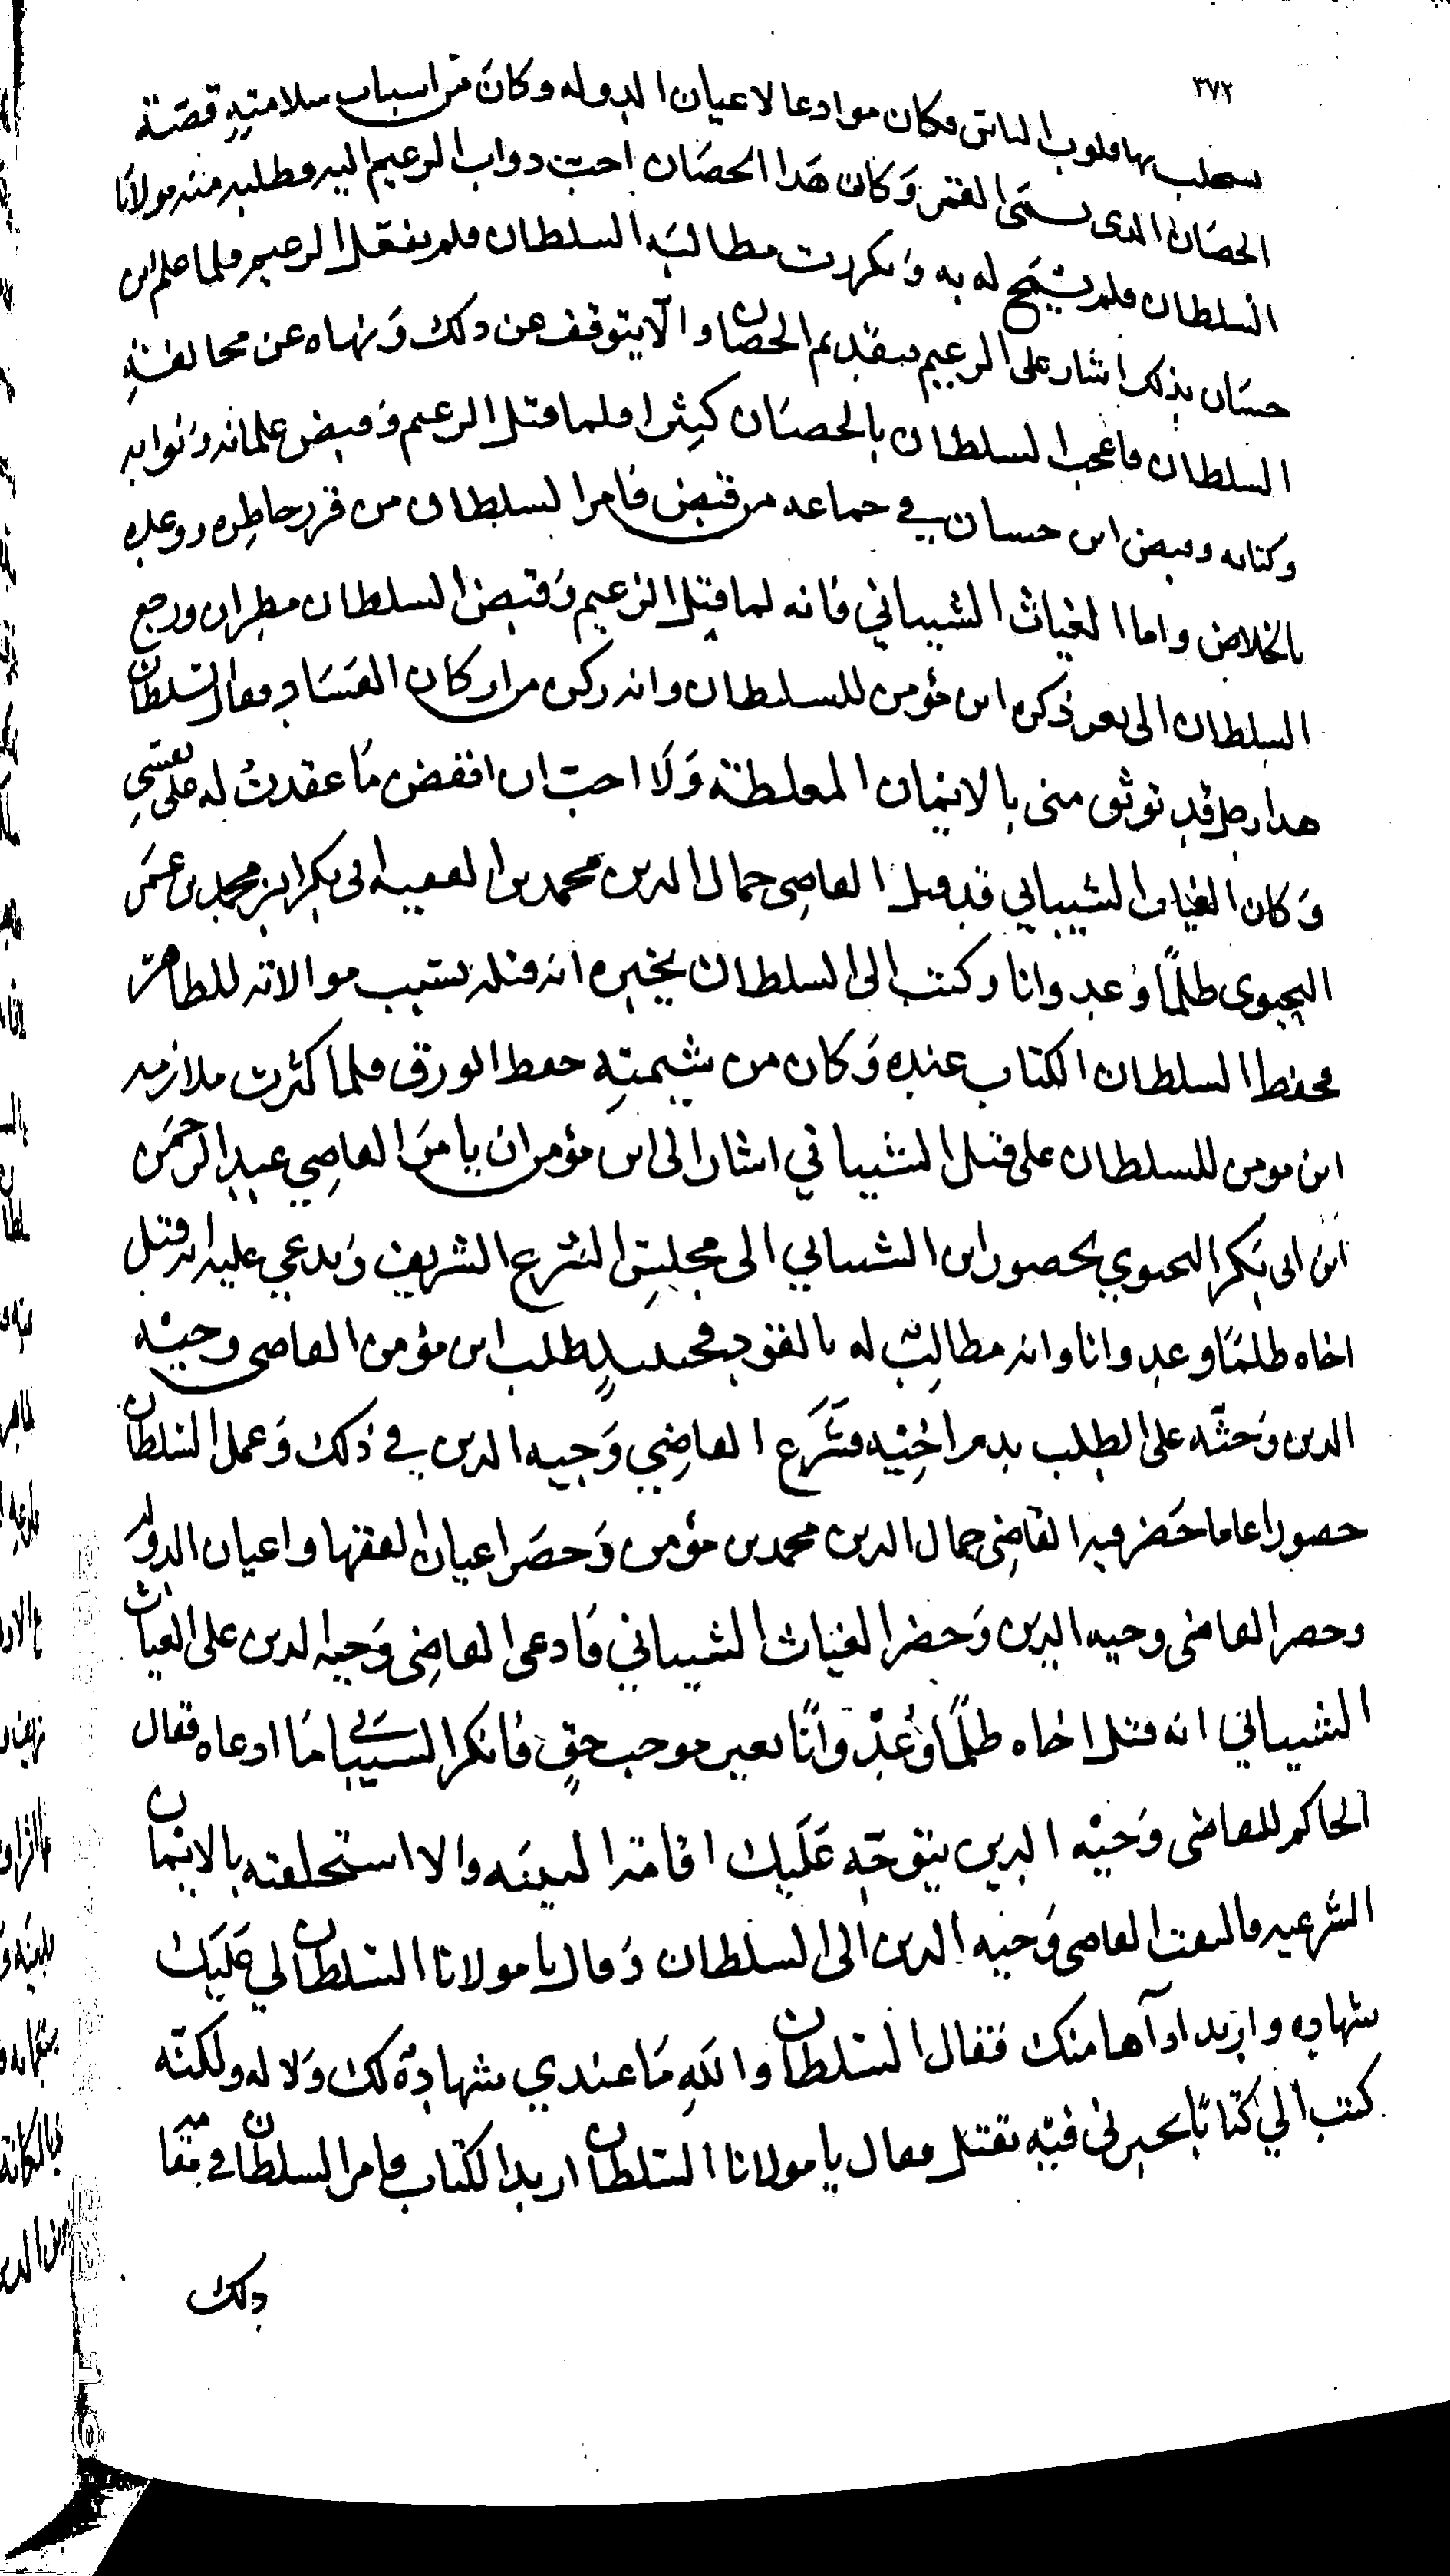 ٣٧٢
يستجلب بها قلوب الناس فكان موادعا لاعيان الدوله وكان من اسباب سلامته قصّة
الحصان الذى يسمى القمر وكان هذا الحصان احب دواب الزعيم اليه وطلبه منه مولانا
السلطان فلم يسمح له به وتكررت مطالبة السلطان فلم يفعل الزعيم فلما علم ابن
حسان بذلك اشار على الزعيم بتقديم الحصان والا يتوقف عن ذلك ونهاه عن مخالفة
السلطان فاعجب السلطان بالحصان كثيرا فلما قتل الزعيم وقبض غلمانه ونوابه
وكتابه وقبض ابن حسان في جماعه من قبض فامر السلطان من قرر خاطره ووعده
بالخلاص واما الغياث الشيباني فانه لما قتل الزعيم وقبض السلطان مطران ورجع
السلطان الى تعز ذكره ابن مؤمن للسلطان وانه ركن من اركان الفساد فقال السلطان
هذا رجل قد توثق منى بالايمان المغلظة ولا احب ان انقض ما عقدت له على نفسي
وكان الغياث الشيباني قد قتل القاضى جمال الدين محمد بن الفقيه ابى بكر بن محمد بن عمر
اليحيوى ظلمًا وعدوانا وكتب الى السلطان يخبره انه قتله بسبب موالاته للظاهر
فحفظ السلطان الكتاب عنده وكان من شيمته حفظ الورق فلما كثرت ملازمه
ابن مومن للسلطان على قتل الشيباني اشار الى ابن مؤمن ان يامر القاضي عبد الرحمن
ابن ابى بكر اليحيوي بحضور ابن الشيباني الى مجلس الشرع الشريف ويدعي عليه انه قتل
اخاه ظلمًا وعدوانا وانه مطالب له بالقود فحينئذٍ طلب ابن مؤمن القاضى وجيه
الدين وحثّه على الطلب بدم اخيه فشرع القاضي وجيه الدين في ذلك وعمل السلطان
حضورا عاما حضر فيه القاضى جمال الدين محمد بن مؤمن وحضر اعيان الفقها واعيان الدوله
وحضر القاضى وجيه الدين وحضر الغياث الشيباني فادعى القاضى وجيه الدين على الغياث
الشيباني انه قتل اخاه ظلمًا وعدوانًا بغير موجب حقٍ فانكر الشيباني ما ادعاه فقال
الحاكم للقاضى وجيه الدين يتوجّه عليك اقامة البينه والا استحلفته بالايمان
الشرعيه فالتفت القاضى وجيه الدين الى السلطان وقال يا مولانا السلطان لي عليك
شهاده واريد ادآها منك فقال السلطان والله ما عندي شهادة لك ولا له ولكنّه
كتب الي كتابًا يخبرنى فيه بقتله فقال يا مولانا السلطان اريد الكتاب فامر السلطان في مقامه
ذلك